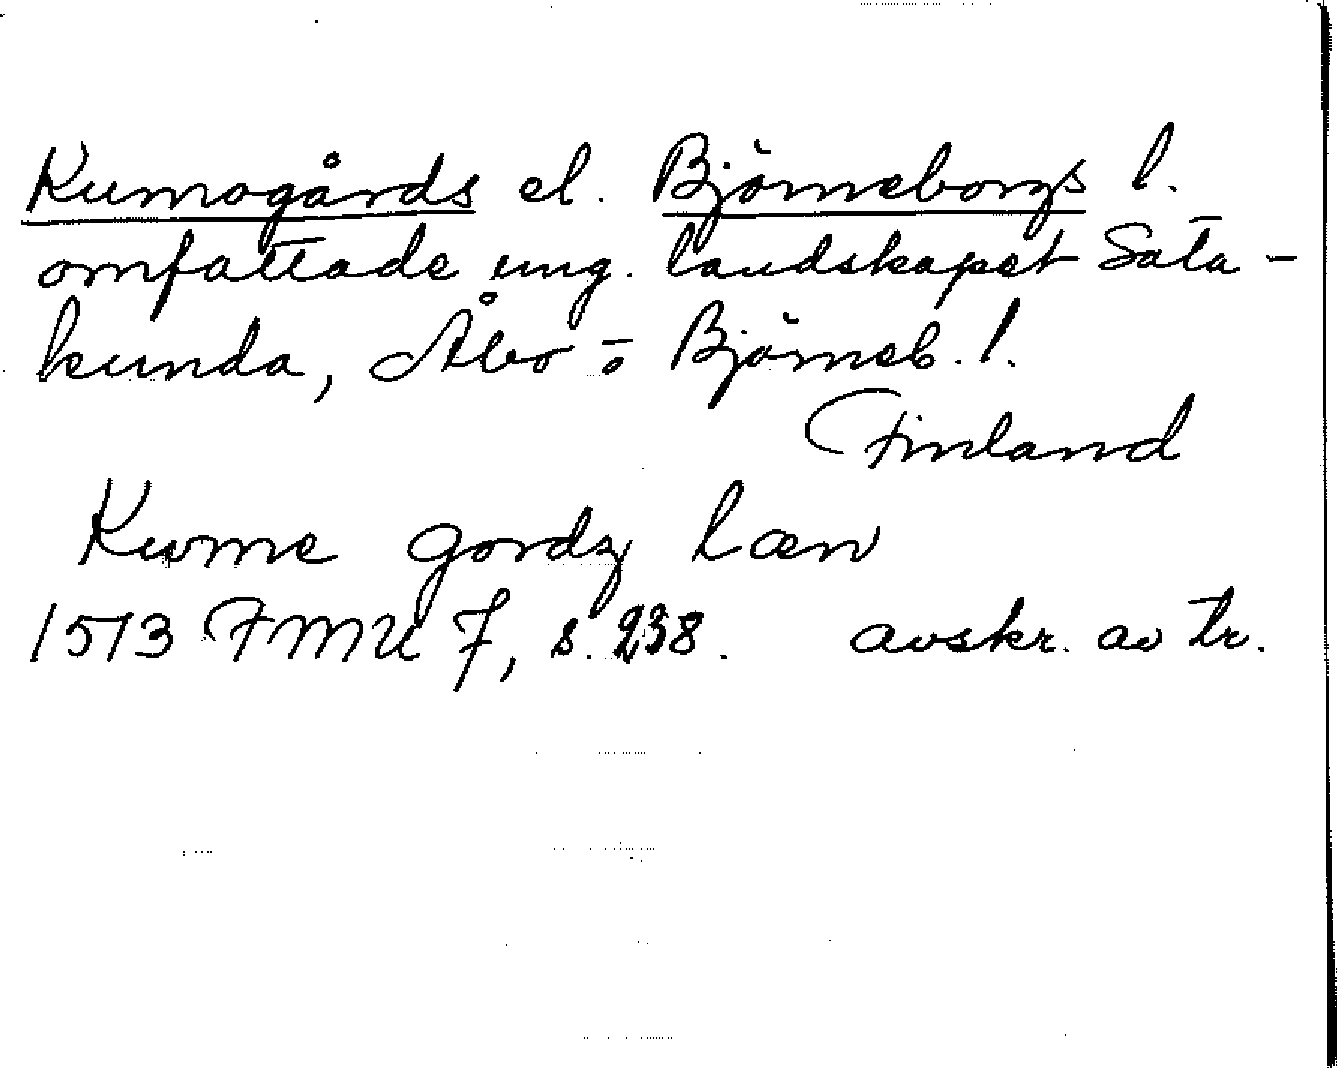 Kumogårds el. Björneborgs l.
omfattade ung. landskapet Sata-
kunda, Åbo o Björneb. l.
Finland
Kwme gordz læn
1513 FMU 7, s. 238. avskr. av tr.